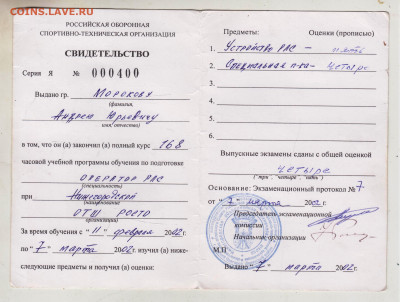 coins.LAVE.RU
РОССИЙСКАЯ ОБОРОННАЯ
СПОРТИВНО-ТЕХНИЧЕСКАЯ ОРГАНИЗАЦИЯ
СВИДЕТЕЛЬСТВО
Серия Я № 000400
Выдано гр. Морокову
(фамилия,
Андрею Юрьевичу
имя, отчество)
в том, что он закончил полный курс 168
часовой учебной программы обучения по подготовке
оператор РЛС
(специальность)
при Нижегородской
(наименование
ОТШ РОСТО
организации)
За время обучения с "11" февраля 2002 г.
по "7" марта 2002 г. изучил(а) ниже-
следующие предметы и получил(а) оценки:
Предметы: Оценки (прописью)
1. Устройство РЛС – пять
2. Специальная п-ка – четыре
3.
4.
5.
6.
7.
Выпускные экзамены сданы с общей оценкой
четыре
(три, четыре, пять)
Основание: Экзаменационный протокол № 7.
от "7" марта 2002 г.
Председатель экзаменационной
комиссии
Начальник организации
М.П.
Выдано "7" марта 2002 г.